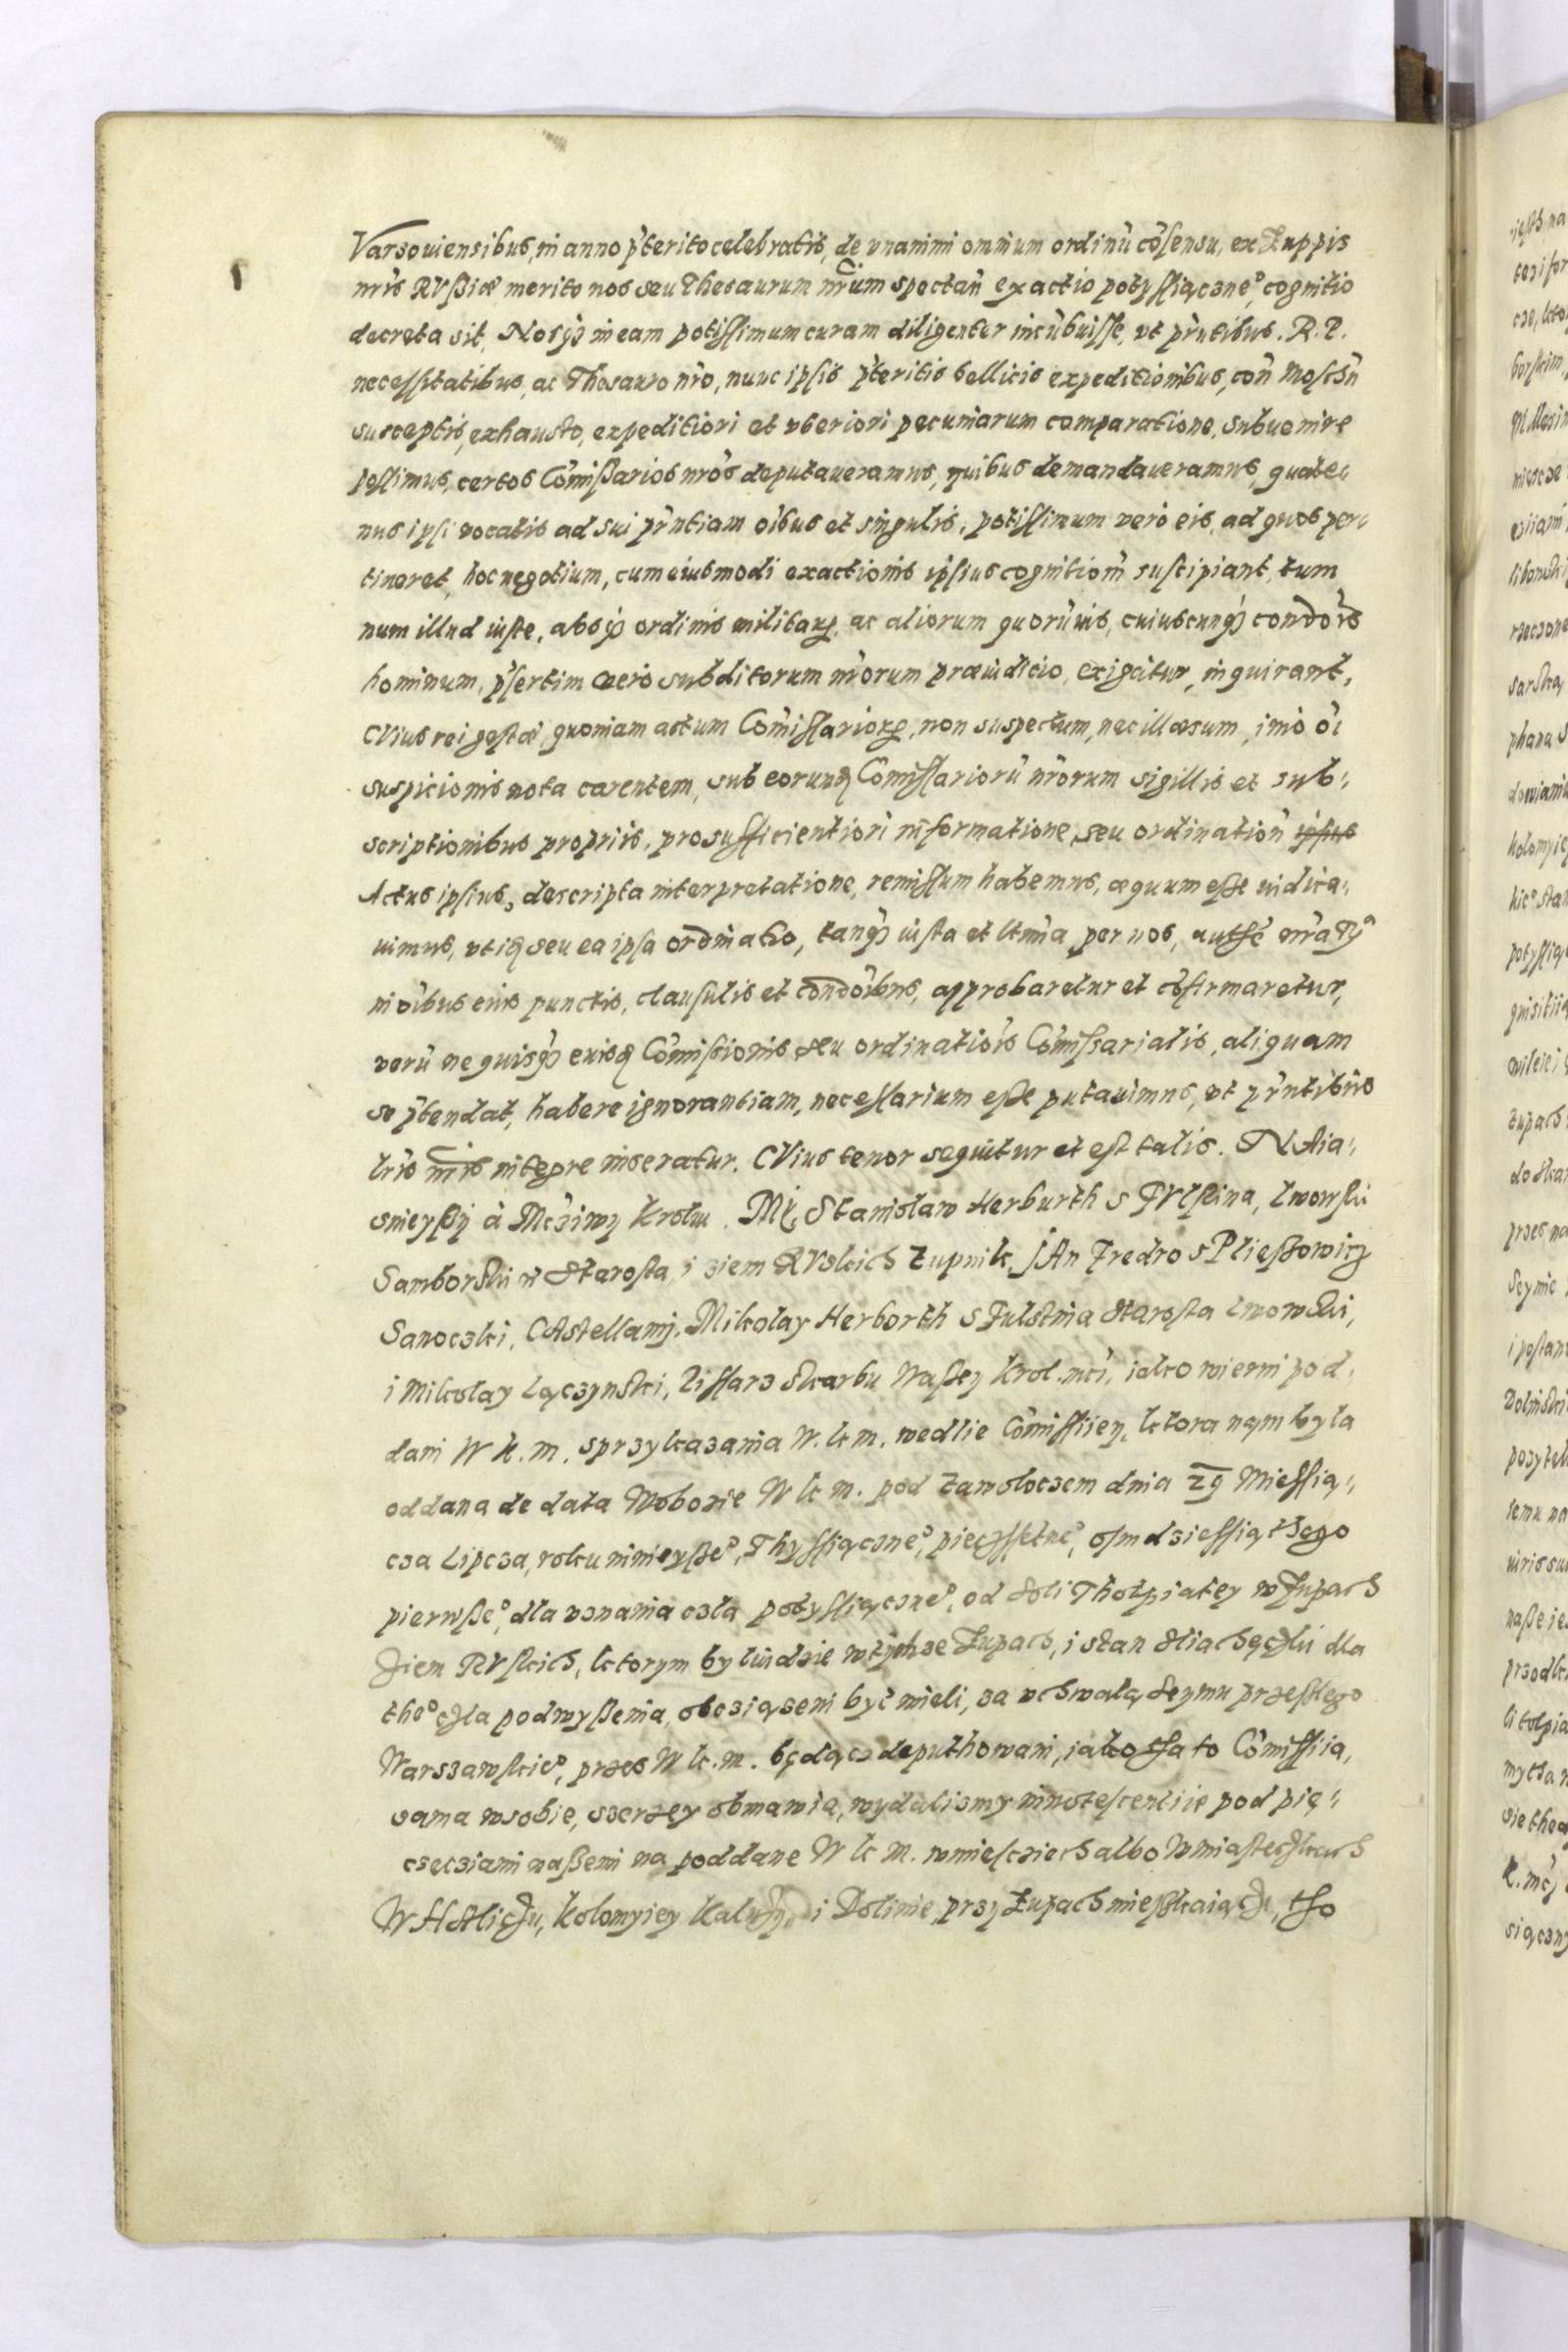 Varsouiensibus, in anno pͥterito celebratis, de vnanimi omnium ordinũ cõsensu, ex Zuppis
nr̃is RVßiæ merito nos seu Thesaurum nr̃um spectañ exactio potyſſiącżneᵒ, cognitio
decreta sit, Nosqȝ in eam potiſſimum curam diligenter incũbuiſſe, vt pr̃ntibus. R. P.
neceſſitatibus, ac Thesauro nr̃o, nunc ipſis pͥteritis bellicis expeditionibus, con̄ Moſch̄
susceptis, exhausto, expeditiori et vberiori pecuniarum comparatione, subuenire
poſſimus, certos Com̃ißarios nr̃os deputaueramus, quibus demandaueramus, quate⸗
nus ipſi vocatis ad sui pr̃ntiam oĩbus et singulis, potiſſimum vero eis, ad quos per⸗
tineret, hoc negotium, cum eiusmodi exactionis ipſius cognitiom̃ suſcipiant, tum
num illud iuſte, absqȝ ordinis militarꝝ, ac aliorum quorũuis, cuiuscunqȝ condõis
hominum, pͥſertim vero subditorum nr̃orum præiudicio, exigatur, inquirant,
CVius rei geſtæ, quoniam actum Com̃iſſariorꝝ, non suspectum, nec illæsum, imò oĩ
suspicionis nota carentem, sub eorundē Com̃iſſariorũ nr̃orum sigillis et sub⸗
scriptionibus propriis, pro sufficientiori informatione, seu ordination̄ ipſius
Actus ipſius, descripta interpretatione, remiſſum habemus, æquum eſſe iudica⸗
uimus, vt iꝗ seu ea ipsa ordinatio, tanqȝ iusta et ltĩma per nos, autħe nr̃a Rᵃ
in oĩbus eius punctis, clauſulis et condõibus, approbaretur et cõfirmaretur,
verũ ne quisqȝ eiusꝗ Com̃iſſionis seu ordinatiõis Com̃iſsarialis, aliquam
se pͥtendat, habere ignorantiam, neceſſarium eſſe putauimus, vt pr̃ntibus
lr̃is nr̃is integre inseratur. CVius tenor sequitur et eſt talis. NAia⸗
snieyſſy à Mcżiwy Krolu. My, Stanisław Herburth s FVlſtina, lwowſki
Samborſki ɩc̃ Staroſta, i ziem RVskich Zupnik, JAn Fredro s Plieſzowicz
Sanoczki, CAstellani, Mikolay Herborth s Fulstina Staroſta lwowſki,
i Mikołay Łączynſki, Piſſarz Skarbu Waßey Krol. mci, iako wierni pod⸗
dani W k. m. s przykazania W. k m. wedlie Com̃iſſiiey, ktora nąm była
oddana de data Woboзie W k m. pod Zawołoczem dnia 29 Mieſſią⸗
cza Lipcza, roku ninieyßeᵒ, Thyſſiączneᵒ, pieczſſetneᵒ, oſmdzieſſiątħego
pierwßeᵒ, dla vznania cżła potyſſiączneᵒ, od Soli Tholpiatey w Żupach
Ziem RVſkich, ktorym by liudzie w tychże Zupach, i stan Sliachęczki dla
theᵒ czła podwyßenia, obcziążeni być mieli, za vchwałą Seymu przeſſłego
Warszawſkieᵒ, przes W k. m. będącz deputhowani, iako tħa to Com̃iſſiia,
sama w sobie, szerzey obmawia, wydaliśmy innoteſcentiie pod pie⸗
częcziami naßemi na poddane W k m. w mieſcziech albo W miaſteczkach
W HAliczu, Kolomyiey Kałuży, i Dolinie, przy Zupach mieſſkaiącze, tħo